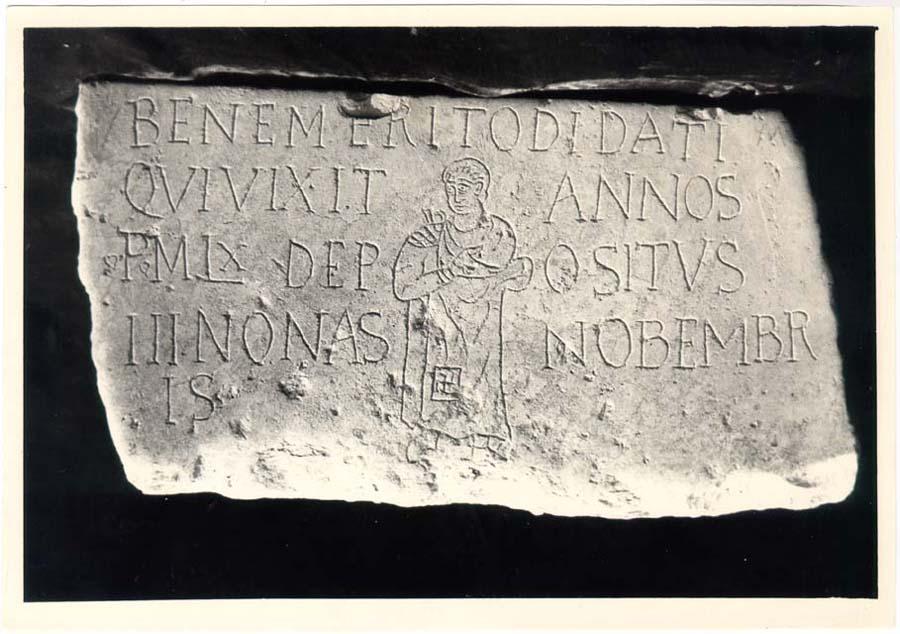 BENEMERITO DIDATI
QVI VIXIT ANNOS
P·M·LX DEPOSITVS
III·NONAS NOBEMBR
IS